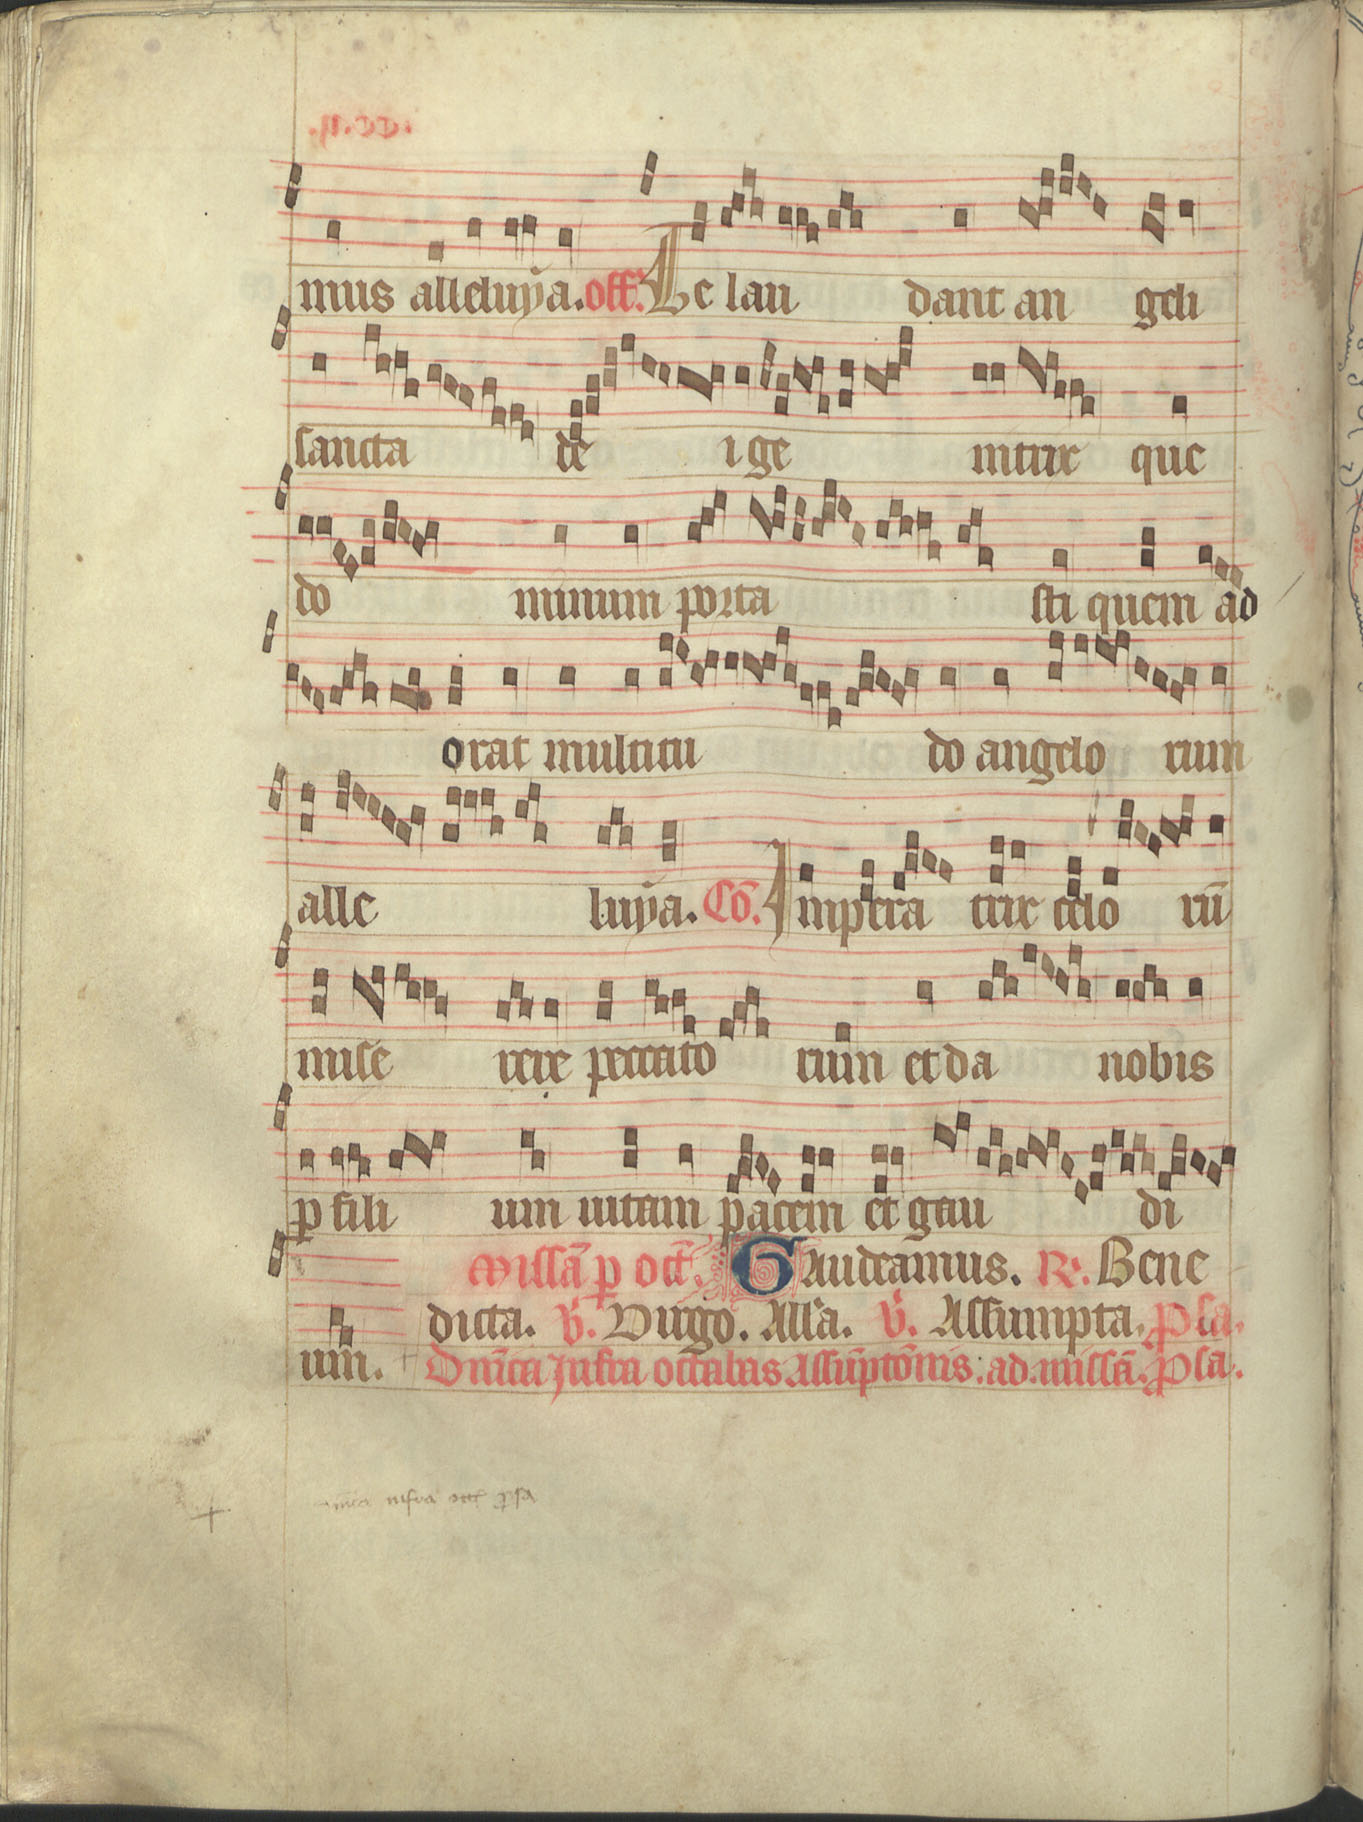 mus alleluya. off. Te lau dant an geli
sancta de i ge nitrix que
do minum porta sti quem ad
orat multitu do angelo rum
alle luya. Cō. Impera trix celo rū
mise rere peccato rum et da nobis
ꝑ fili um uitam pacem et gau di
Missā ꝑ oct. Gaudeamus. R. Bene
dicta. v. Uirgo. Alla. v. Assumpta. Psa.
um. Dnica Infra octabas Assūptōnis: ad missā. Psa.
infra oct psa